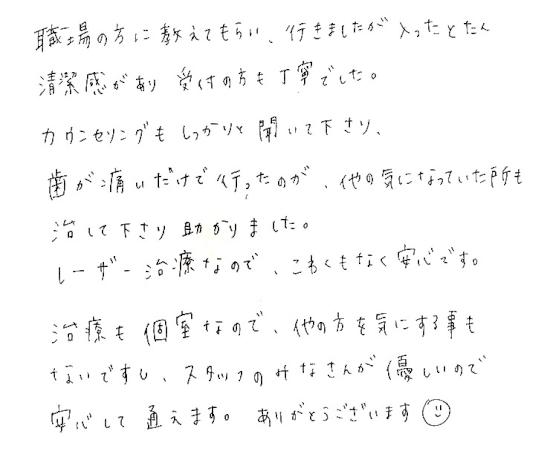 職場の方に教えてもらい、行きましたが入ったとたん
清潔感があり 受付の方も丁寧でした。
カウンセリングもしっかりと聞いて下さり、
歯が痛いだけで行ったのが、他の気になっていた所も
治して下さり助かりました。
レーザー治療なので、こわくもなく安心です。
治療も個室なので、他の方を気にする事も
ないですし、スタッフのみなさんが優しいので
安心して通えます。ありがとうございます☺